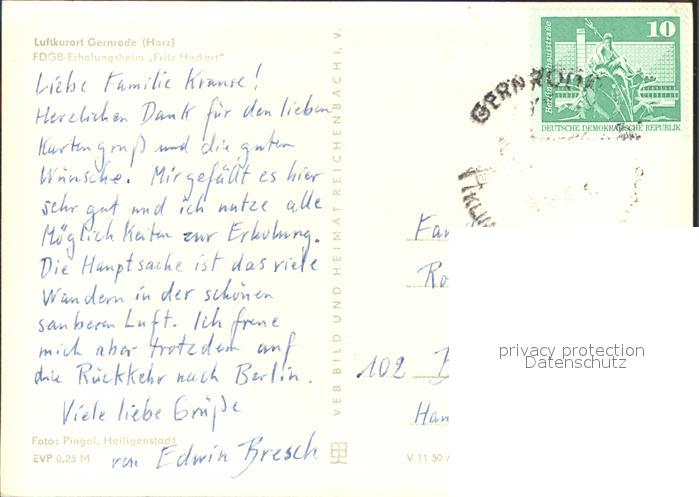 Luftkurort Gernrode (Harz)
FDGB-Erholungsheim „Fritz Heckert"
Liebe Familie Krause!
Herzlichen Dank für den lieben
Kartengruß und die guten
Wünsche. Mir gefällt es hier
sehr gut und ich nutze alle
Möglichkeiten zur Erholung.
Die Hauptsache ist das viele
Wandern in der schönen
sauberen Luft. Ich freue
mich aber trotzdem auf
die Rückkehr nach Berlin.
Viele liebe Grüße
von Edwin Bresch
Foto: Pingel, Heiligenstadt
EVP 0,25 M
VEB BILD UND HEIMAT REICHENBACH I. V.
V 11 50
10
DEUTSCHE DEMOKRATISCHE REPUBLIK
GERNRODE
Fam
Ro
102 B
Han
privacy protection
Datenschutz